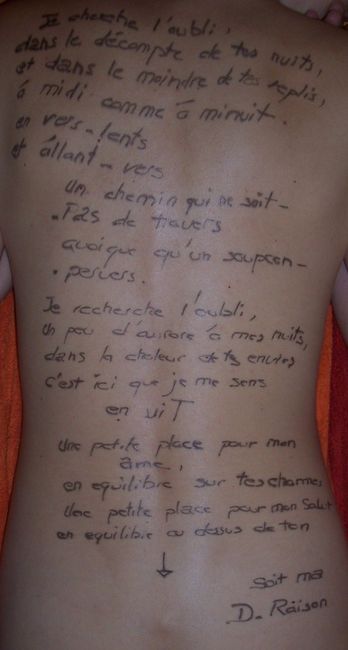 Je cherche l'oubli,
dans le décompte de tes nuits,
et dans le moindre de tes replis,
à midi comme à minuit.
en vers-lents
et allant-vers
un chemin qui ne soit-
-PAS de travers
quoique qu'un soupçon-
-pervers.
Je recherche l'oubli,
un peu d'aurore à mes nuits,
dans la chaleur de tes envies
c'est ici que je me sens
en viT
Une petite place pour mon
âme,
en équilibre sur tes charmes
Une petite place pour mon Salut
en équilibre au dessus de ton
↓
Soit ma
D. Raison